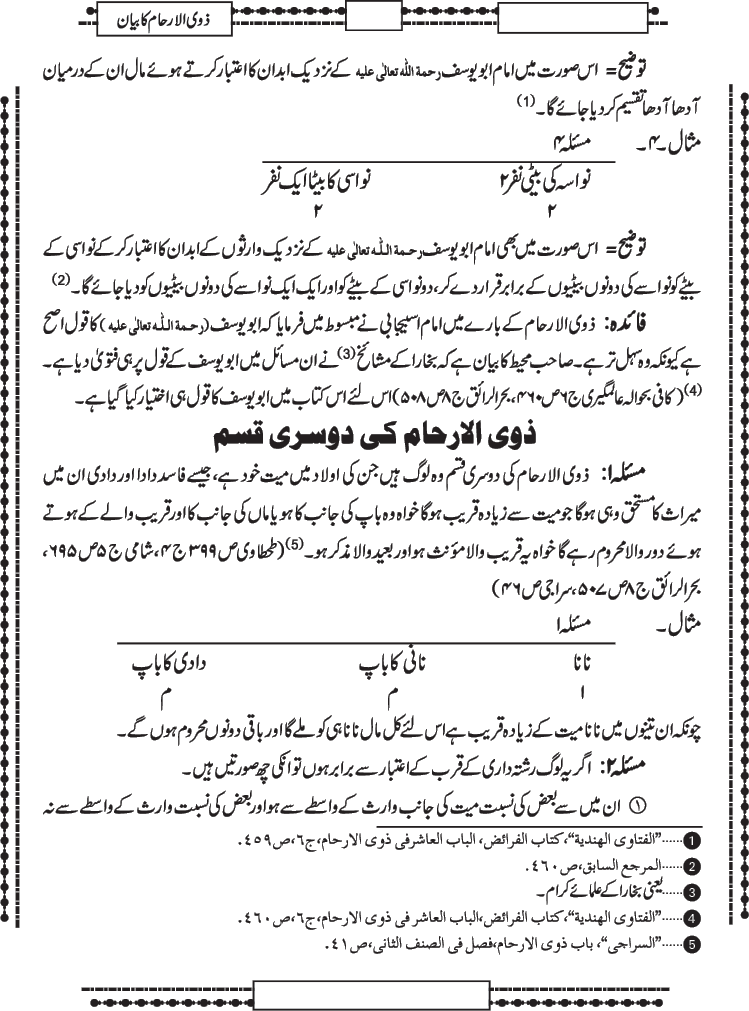 ذوی الارحام کا بیان
توضیح= اس صورت میں امام ابو یوسف رحمة الله تعالٰی علیه کے نزدیک ابدان کا اعتبار کرتے ہوئے مال ان کے درمیان
آدھا آدھا تقسیم کر دیا جائے گا۔(1)
مثال۔۴۔ مسئلہ۴
نواسہ کی بیٹی نفر۲ نواسی کا بیٹا ایک نفر
۲ ۲
توضیح= اس صورت میں بھی امام ابو یوسف رحمة الله تعالٰی علیه کے نزدیک وارثوں کے ابدان کا اعتبار کر کے نواسی کے
بیٹے کو نواسے کی دونوں بیٹیوں کے برابر قرار دے کر، دو نواسی کے بیٹے کو اور ایک ایک نواسے کی دونوں بیٹیوں کو دیا جائے گا۔(2)
فائدہ: ذوی الارحام کے بارے میں امام اسبیجابی نے مبسوط میں فرمایا کہ ابو یوسف (رحمة الله تعالٰی علیه) کا قول اصح
ہے کیونکہ وہ سہل تر ہے۔ صاحب محیط کا بیان ہے کہ بخارا کے مشائخ(3) نے ان مسائل میں ابو یوسف کے قول پر ہی فتویٰ دیا ہے۔
(4)(کافی بحوالہ عالمگیری ج۶ص۴۶۰، بحر الرائق ج۸ص۵۰۸) اس لئے اس کتاب میں ابو یوسف کا قول ہی اختیار کیا گیا ہے۔
ذوی الارحام کی دوسری قسم
مسئلہ۱: ذوی الارحام کی دوسری قسم وہ لوگ ہیں جن کی اولاد میں میت خود ہے، جیسے فاسد دادا اور دادی ان میں
میراث کا مستحق وہی ہوگا جو میت سے زیادہ قریب ہوگا خواہ وہ باپ کی جانب کا ہو یا ماں کی جانب کا اور قریب والے کے ہوتے
ہوئے دور والا محروم رہے گا خواہ یہ قریب والا مؤنث ہو اور بعید والا مذکر ہو۔(5)(طحطاوی ص۳۹۹ج۴، شامی ج۵ص۶۹۵،
بحر الرائق ج۸ص۵۰۷، سراجی ص۴۶)
مثال۔ مسئلہ۱
نانا نانی کا باپ دادی کا باپ
۱ م م
چونکہ ان تینوں میں نانا میت کے زیادہ قریب ہے اس لئے کل مال نانا ہی کو ملے گا اور باقی دونوں محروم ہوں گے۔
مسئلہ۲: اگر یہ لوگ رشتہ داری کے قرب کے اعتبار سے برابر ہوں تو انکی چھ صورتیں ہیں۔
① ان میں سے بعض کی نسبت میت کی جانب وارث کے واسطے سے ہو اور بعض کی نسبت وارث کے واسطے سے نہ
1......"الفتاوی الهندیة"، کتاب الفرائض، الباب العاشر فی ذوی الارحام، ج۶، ص۴۵۹.
2......المرجع السابق، ص۴۶۰.
3......یعنی بخارا کے علمائے کرام۔
4......"الفتاوی الهندیة"، کتاب الفرائض، الباب العاشر فی ذوی الارحام، ج۶، ص۴۶۰.
5......"السراجی"، باب ذوی الارحام، فصل فی الصنف الثانی، ص۴۱.